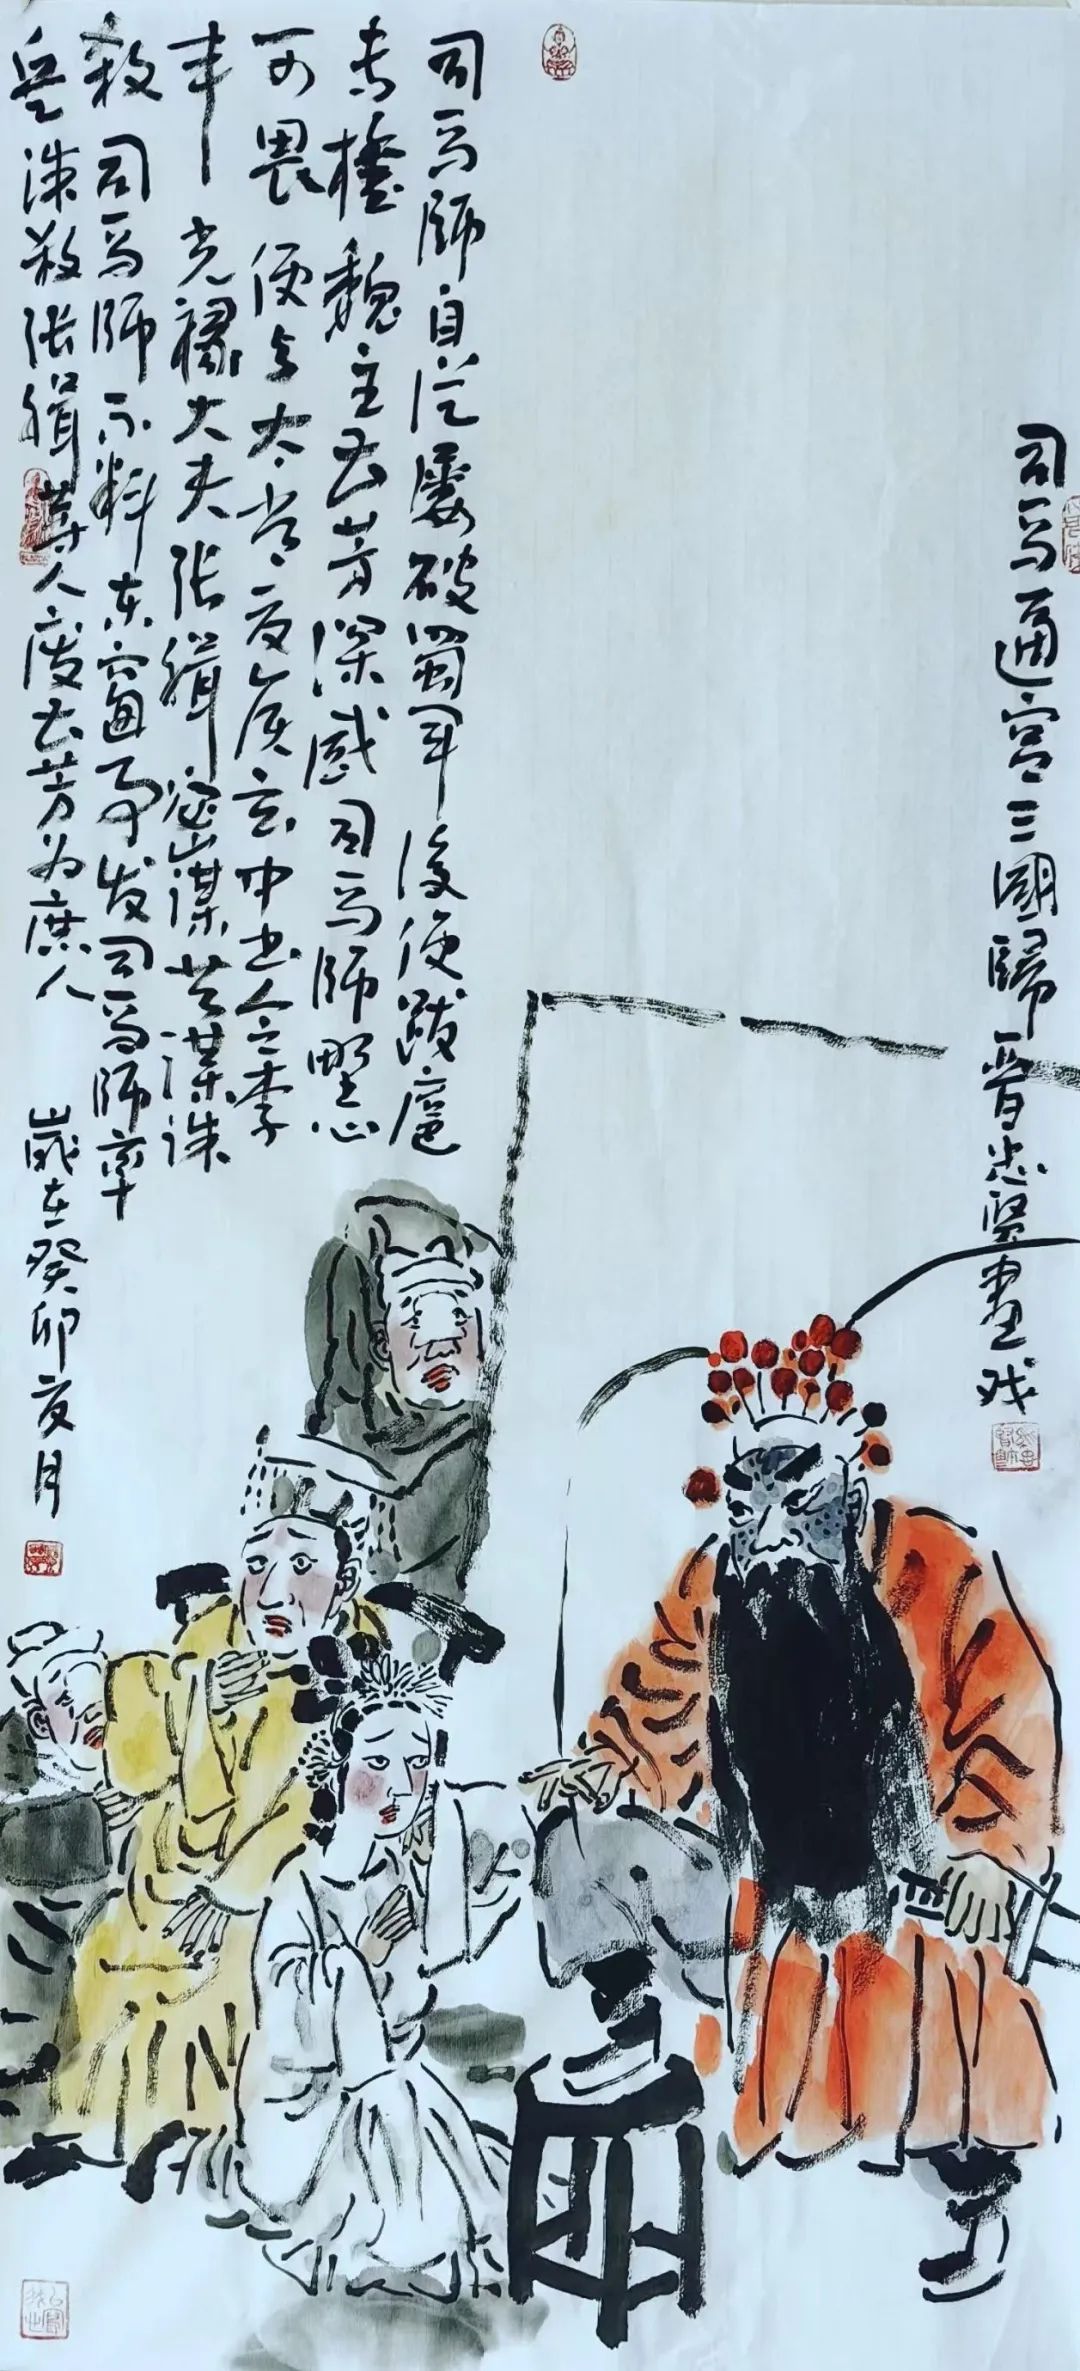 司马逼宫三國歸晋忠贤畫戏
司马師自從屡破蜀军後便跋扈
专權魏主曹芳深感司马師野心
可畏便与太常夏侯玄中书令李
丰光禄大夫张缉密谋共谋诛
殺司马師不料东窗事发司马師率
兵诛殺张缉等人废曹芳为庶人 歲在癸卯夏月